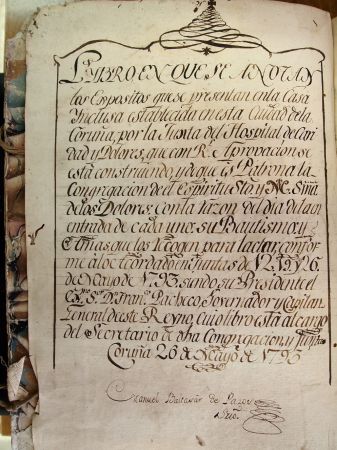 LIBRO EN QUE SE ANOTAN
los Expositos que se presentan en la Casa
Inclusa establecida en esta Ciudad de la
Coruña, por la Junta del Hospital de Cari
dad y Dolores, que con Rl. Aprovacion se
está construiendo, y de que es Patrona la
Congregacion de el Espiritu Sto. y Nra. Sra.
de los Dolores: con la razon del dia de la en
trada de cada uno: su Bautismo, y
Amas, que los recogen para lactar, confor
me à lo acordado en Juntas de 12, y 26
de Mayo de 1793, siendo su Presidente el
Exmo. Sr. Dn. Franco. Pacheco Governador y Capitan
General de este Reyno, cuio libro està al cargo
del Secretario de dha Congregacion, y Junta
Coruña 26 de Mayo de 1793
Manuel Baltasar de Pazos
Srio.